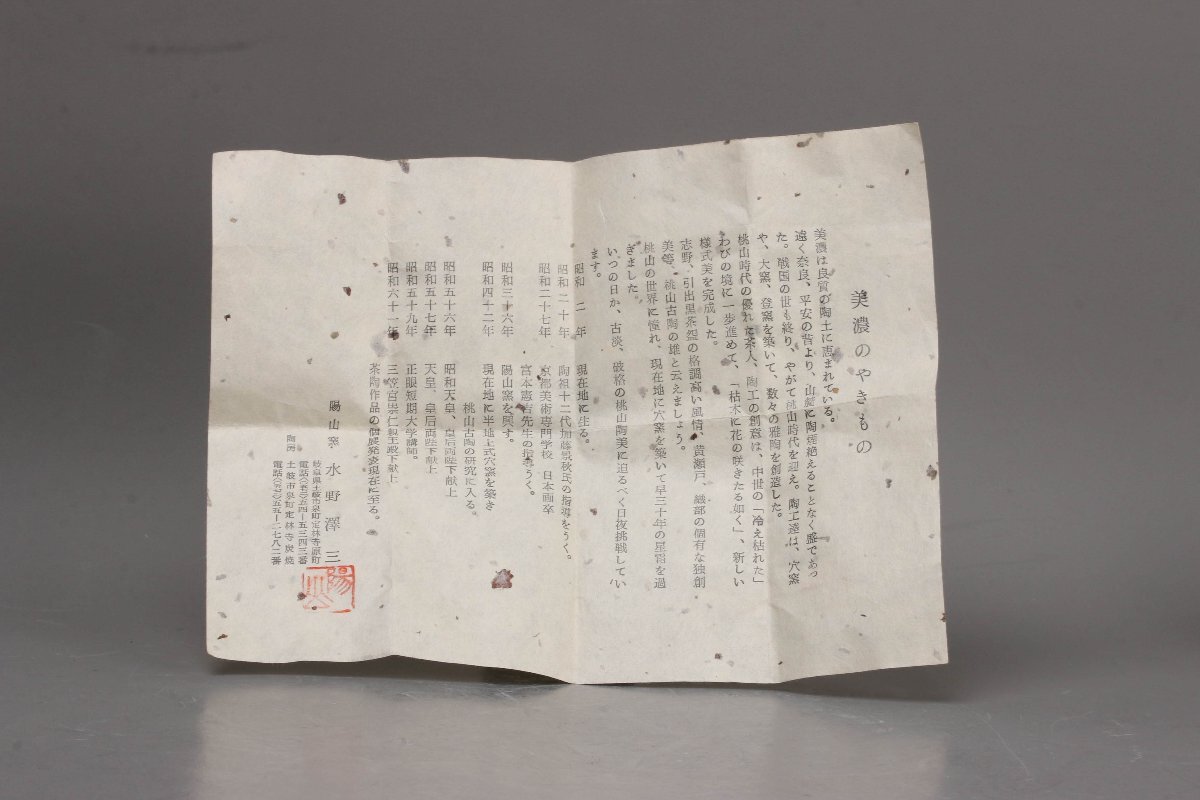 美濃のやきもの
美濃は良質の陶土に恵まれている。
遠く奈良、平安の昔より、山麓に陶煙絶えることなく盛であっ
た。戦国の世も終り、やがて桃山時代を迎え。陶工達は、穴窯
や、大窯、登窯を築いて、数々の雅陶を創造した。
桃山時代の優れた茶人、陶工の創意は、中世の「冷え枯れた」
わびの境に一歩進めて、「枯木に花の咲きたる如く」、新しい
様式美を完成した。
志野、引出黒茶盌の格調高い風情、黄瀬戸、織部の個有な独創
美等、桃山古陶の雄と云えましょう。
桃山の世界に憧れ、現在地に穴窯を築いて早三十年の星霜を過
ぎました。
いつの日か、古淡、破格の桃山陶美に迫るべく日夜挑戦してい
ます。
昭和二年 現在地に生る。
昭和二十年 陶祖十二代加藤景秋氏の指導をうく。
昭和二十七年 京都美術専門学校 日本画卒
宮本憲吉先生の指導うく。
昭和三十六年 陽山窯を興す。
昭和四十二年 現在地に半地上式穴窯を築き
桃山古陶の研究に入る。
昭和五十六年 昭和天皇、皇后両陛下献上
昭和五十七年 天皇、皇后両陛下献上
昭和五十九年 正眼短期大学講師。
昭和六十一年 三笠宮崇仁親王殿下献上
茶陶作品の個展発表現在に至る。
陽山窯 水野澤三
岐阜県土岐市泉町定林寺原町
電話(〇五七二)五四ー五三四三番
陶房 土岐市泉町定林寺炭焼
電話(〇五七二)五五ー二七八二番
陽山